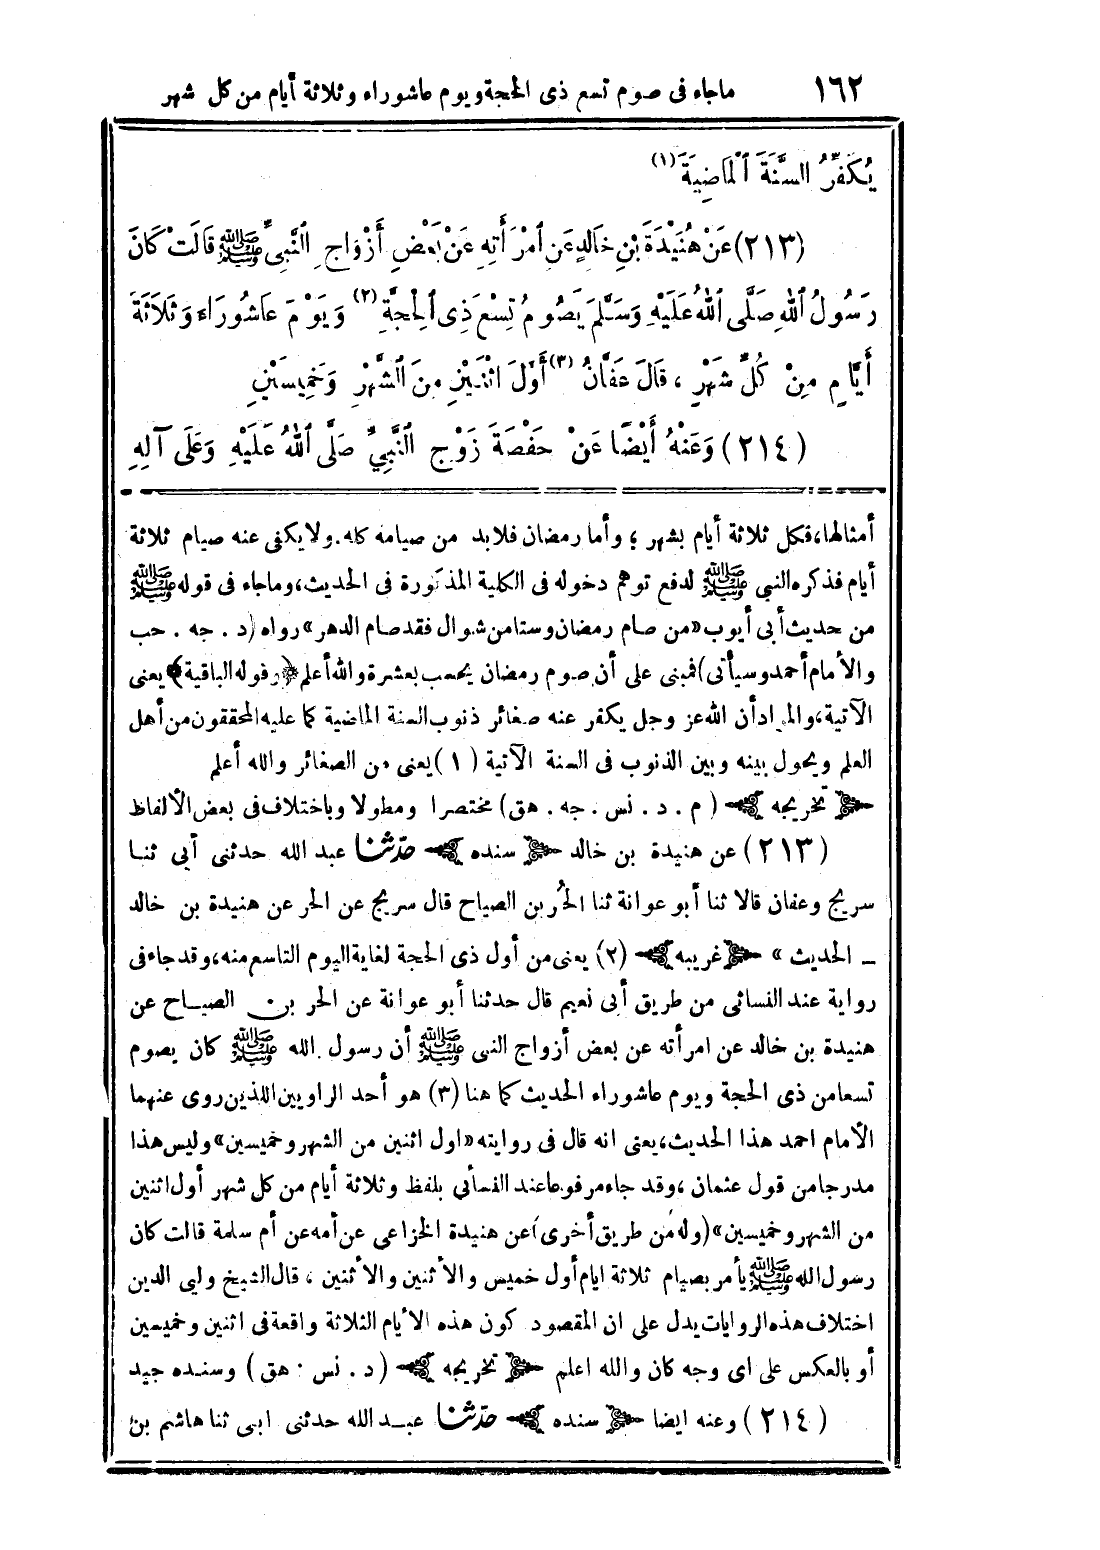 ١٦٢ ماجاء فى صوم تسع ذى الحجة ويوم عاشوراء وثلاثة أيام من كل شهر
يُكَفِّرُ السَّنَةَ الْمَاضِيَةَ (١)
(٢١٣) عَنْ هُنَيْدَةَ بْنِ خَالِدٍ عَنِ امْرَأَتِهِ عَنْ بَعْضِ أَزْوَاجِ النَّبِيِّ ﷺ قَالَتْ كَانَ
رَسُولُ اللهِ صَلَّى اللهُ عَلَيْهِ وَسَلَّمَ يَصُومُ تِسْعَ ذِى الْحِجَّةِ (٢) وَيَوْمَ عَاشُورَاءَ وَثَلَاثَةَ
أَيَّامٍ مِنْ كُلِّ شَهْرٍ ، قَالَ عَفَّانُ (٣) أَوَّلَ اثْنَيْنِ مِنَ الشَّهْرِ وَخَمِيسَيْنِ
(٢١٤) وَعَنْهُ أَيْضًا عَنْ حَفْصَةَ زَوْجِ النَّبِيِّ صَلَّى اللهُ عَلَيْهِ وَعَلَى آلِهِ
أمثالها، فكل ثلاثة أيام بشهر ؛ وأما رمضان فلابد من صيامه كله. ولا يكفى عنه صيام ثلاثة
أيام فذكره النبي ﷺ لدفع توهم دخوله فى الكلية المذكورة فى الحديث، وماجاء فى قوله ﷺ
من حديث أبى أيوب «من صام رمضان وستا من شوال فقد صام الدهر» رواه (د . جه . حب
والأمام أحمد وسيأتى) فمبنى على أن صوم رمضان يحسب بعشرة والله أعلم ﴿وقوله الباقية﴾ يعنى
الآتية، والمراد أن الله عز وجل يكفر عنه صغائر ذنوب السنة الماضية كما عليه المحققون من أهل
العلم ويحول بينه وبين الذنوب فى السنة الآتية (١) يعنى من الصغائر والله أعلم
﴿ تخريجه ﴾ (م . د . نس . جه . هق) مختصرا ومطولا وباختلاف فى بعض الألفاظ
(٢١٣) عن هنيدة بن خالد ﴿ سنده ﴾ حدثنا عبد الله حدثنى أبي ثنا
سريج وعفان قالا ثنا أبو عوانة ثنا الحُر بن الصياح قال سريج عن الحر عن هنيدة بن خالد
ــ الحديث » ﴿ غريبه ﴾ (٢) يعنى من أول ذى الحجة لغاية اليوم التاسع منه، وقد جاء فى
رواية عند النسائى من طريق أبى نعيم قال حدثنا أبو عوانة عن الحر بن الصيــاح عن
هنيدة بن خالد عن امرأته عن بعض أزواج النبى ﷺ أن رسول الله ﷺ كان يصوم
تسعا من ذى الحجة ويوم عاشوراء الحديث كما هنا (٣) هو أحد الراويين اللذين روى عنهما
الأمام احمد هذا الحديث، يعنى انه قال فى روايته «اول اثنين من الشهر وخميسين» وليس هذا
مدرجا من قول عثمان ، وقد جاء مرفوعا عند النسأئي بلفظ وثلاثة أيام من كل شهر أول اثنين
من الشهر وخميسين» (وله من طريق أخرى) عن هنيدة الخزاعى عن أمه عن أم سلمة قالت كان
رسول الله ﷺ يأمر بصيام ثلاثة ايام أول خميس والأثنين والأثنين ، قال الشيخ ولي الدين
اختلاف هذه الروايات يدل على ان المقصود كون هذه الأيام الثلاثة واقعة فى اثنين وخميسين
أو بالعكس على اى وجه كان والله اعلم ﴿ تخريجه ﴾ (د . نس . هق) وسنده جيد
(٢١٤) وعنه ايضا ﴿ سنده ﴾ حدثنا عبــد الله حدثنى ابى ثنا هاشم بن